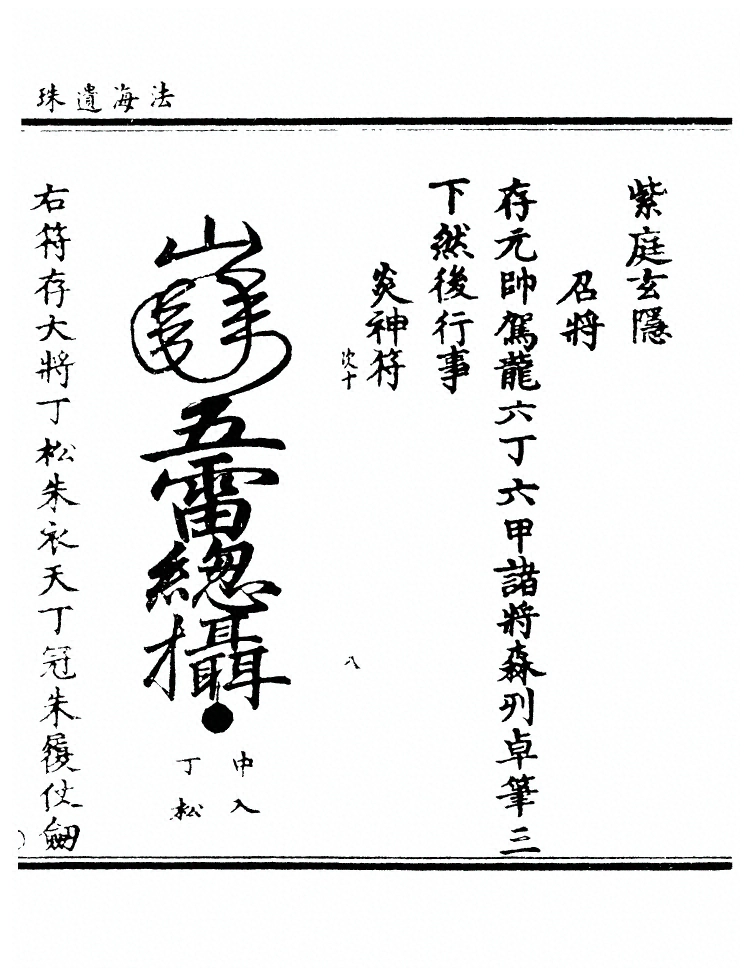 法海遺珠
紫庭玄隱
召將
存元帥駕龍六丁六甲諸將森列卓筆三
下然後行事
炎神符
沈十
八
五雷總攝
中入
丁松
右符存大將丁松朱衣天丁冠朱履仗劒